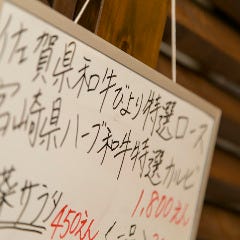 佐賀県和牛びより特選ロース
宮崎県ハーブ和牛特選カルビ
1,800えん
菜サラダ
450えん